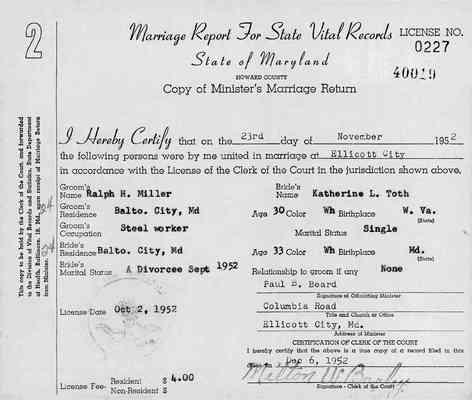 2
Marriage Report For State Vital Records
LICENSE NO.
0227
State of Maryland
HOWARD COUNTY
40019
Copy of Minister's Marriage Return
I Hereby Certify that on the 23rd day of November 1952
the following persons were by me united in marriage at Ellicott City
in accordance with the License of the Clerk of the Court in the jurisdiction shown above.
Groom's Name Ralph H. Miller Bride's Name Katherine L. Toth
Groom's Residence Balto. City, Md Age 30 Color Wh Birthplace W. Va.
(State)
Groom's Occupation Steel worker Marital Status Single
Bride's Residence Balto. City, Md Age 33 Color Wh Birthplace Md.
(State)
Bride's Marital Status A Divorcee Sept 1952 Relationship to groom if any None
Paul B. Beard
Signature of Officiating Minister
License Date Oct 2, 1952 Columbia Road
Title and Church or Office
Ellicott City, Md.
Address of Minister
CERTIFICATION OF CLERK OF THE COURT
I hereby certify that the above is a true copy of a record filed in this
Dec 6, 1952
License Fee- Resident $ 4.00
Non-Resident $
Signature - Clerk of the Court
This copy to be held by the Clerk of the Court, and forwarded
to the Division of Vital Records and Statistics, State Department
of Health, Baltimore, 18, Md., upon receipt of Marriage Return
from Minister.